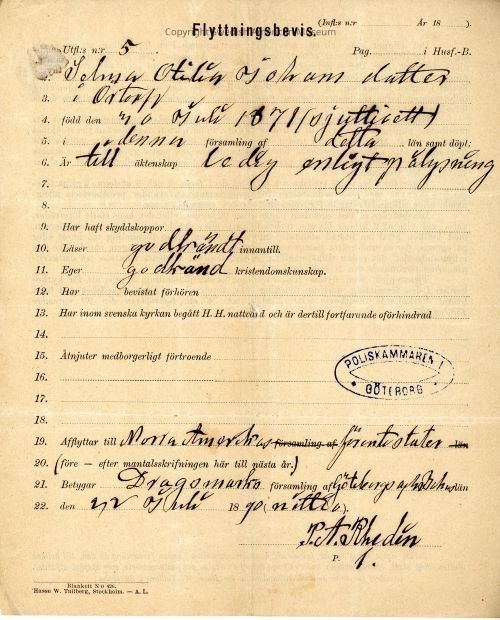 (Infl: n:r År 18 ).
Flyttningsbevis.
Utfl: n:r 5 Pag. i Husf.-B.
2. Selma Otilia Johans dotter
3. i
4. född den 20 Juli 1871 (sjuttiett)
5. i denna församling af detta län samt döpt:
6. Är till äktenskap ledig enligt pålysning
7.
8.
9. Har haft skyddskoppor
10. Läser godkändt innantill.
11. Eger godkänd kristendomskunskap.
12. Har bevistat förhören
13. Har inom svenska kyrkan begått H. H. nattvard och är dertill fortfarande oförhindrad
14.
15. Åtnjuter medborgerligt förtroende
16.
17.
18.
POLISKAMMAREN I
GÖTEBORG
19. Afflyttar till Norra Amerikas församling af förenta stater län
20. (före — efter mantalsskrifningen här till nästa år.)
21. Betygar Dragsmarks församling af Göteborgs och Bohus län
22. den 22 Juli 1890 (nittio).
P. A. Rhedin
P.
Blankett N:o 426.
Hasse W. Tullberg, Stockholm. — A. L.